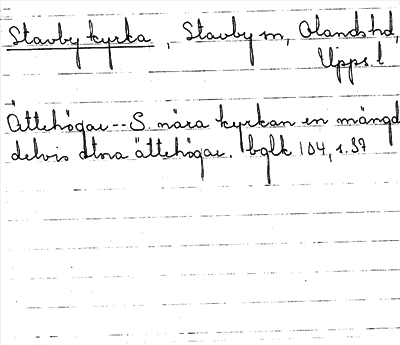 Stavby kyrka, Stavby sn, Olands hd,
Upps. l.
Ättehögar -- S. nära kyrkan en mängd
delvis stora ättehögar. bglk 104, s. 37